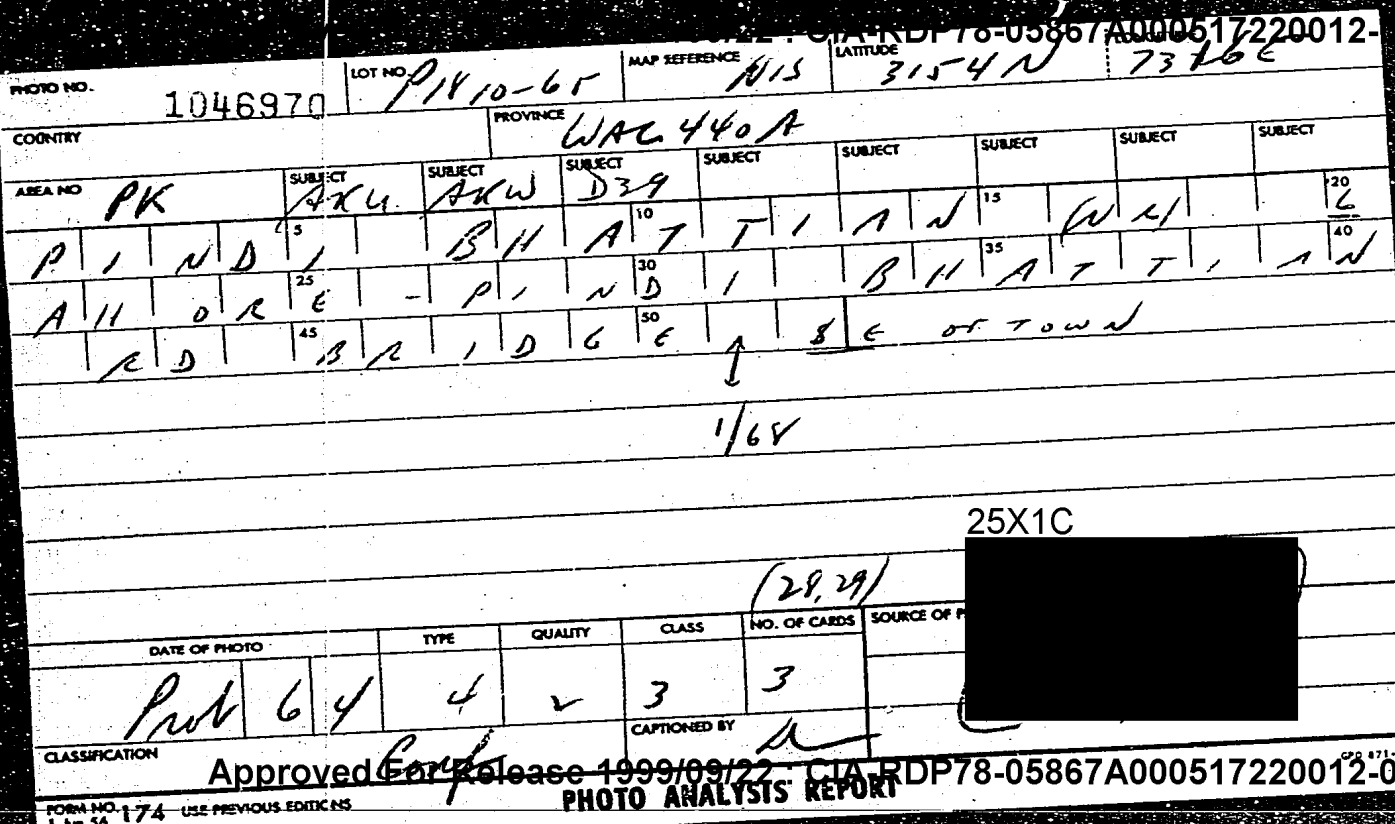 CIA-RDP78-05867A000517220012-
PHOTO NO. 1046970 LOT NO. P1810-65 MAP REFERENCE NIS LATITUDE 3154N 73 16E
COUNTRY PROVINCE WAC 440A
AREA NO PK SUBJECT AKU SUBJECT AKW SUBJECT D39 SUBJECT SUBJECT SUBJECT SUBJECT SUBJECT
5 10 15 20
PINDI BHATTIAN (NY) L
25 30 35 40
AHORE - PINDI BHATTIAN
45 50
RD BRIDGE 8 E OF TOWN
1/68
25X1C
(28,29)
DATE OF PHOTO TYPE QUALITY CLASS NO. OF CARDS SOURCE OF P
Prob 64 4 2 3 3
CAPTIONED BY
CLASSIFICATION Conf
Approved For Release 1999/09/22 : CIA-RDP78-05867A000517220012-0
FORM NO. 174 USE PREVIOUS EDITIONS PHOTO ANALYSIS REPORT